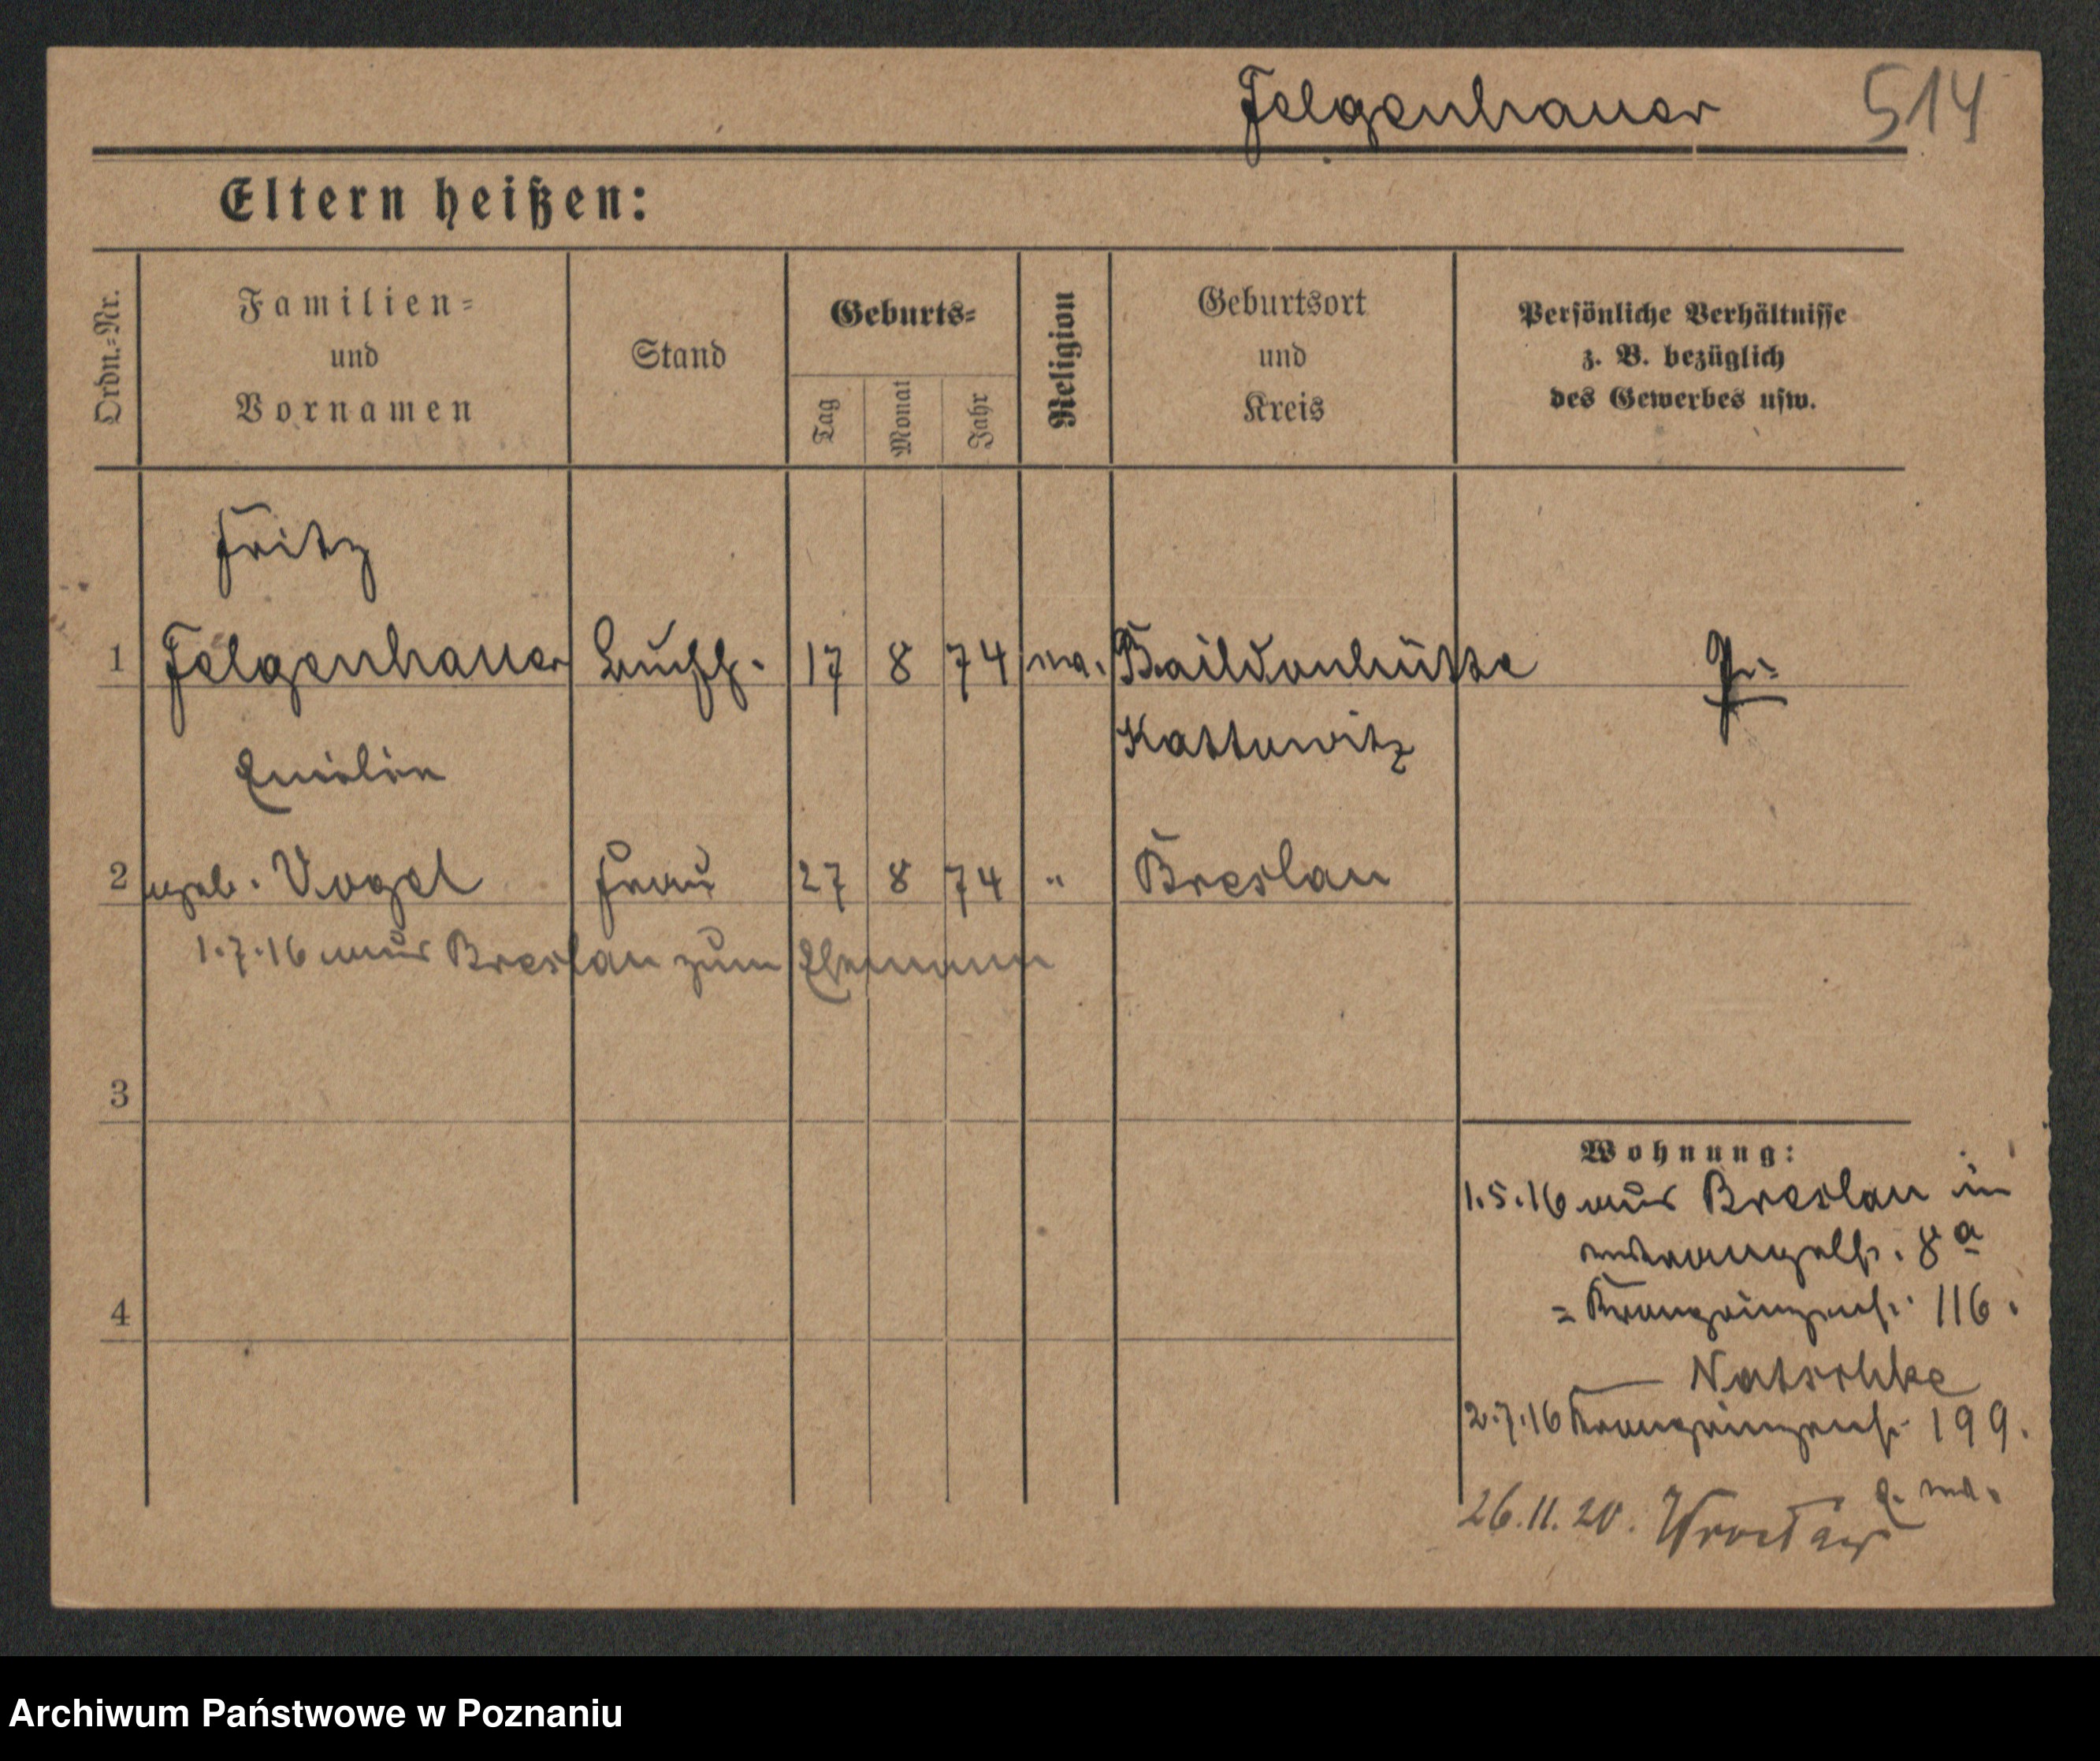 Felgenhauer 514
Eltern heißen:
Ordn.=Nr.
Familien=
und
Vornamen
Stand
Geburts=
Tag
Monat
Jahr
Religion
Geburtsort
und
Kreis
Persönliche Verhältnisse
z. B. bezüglich
des Gewerbes usw.
Fritz
1 Felgenhauer Buchh. 17 8 74 Baildonhütte
Kattowitz
Emilie
2 geb. Vogel Frau 27 8 74 " Breslau
1.7.16 aus Breslau zum Ehemann
3
4
Wohnung:
1.5.16 aus Breslau in
8a
= Kronprinzenstr. 116.
— Natschke
2.7.16 Kronprinzenstr. 199.
26.11.20. Wrocław
Archiwum Państwowe w Poznaniu